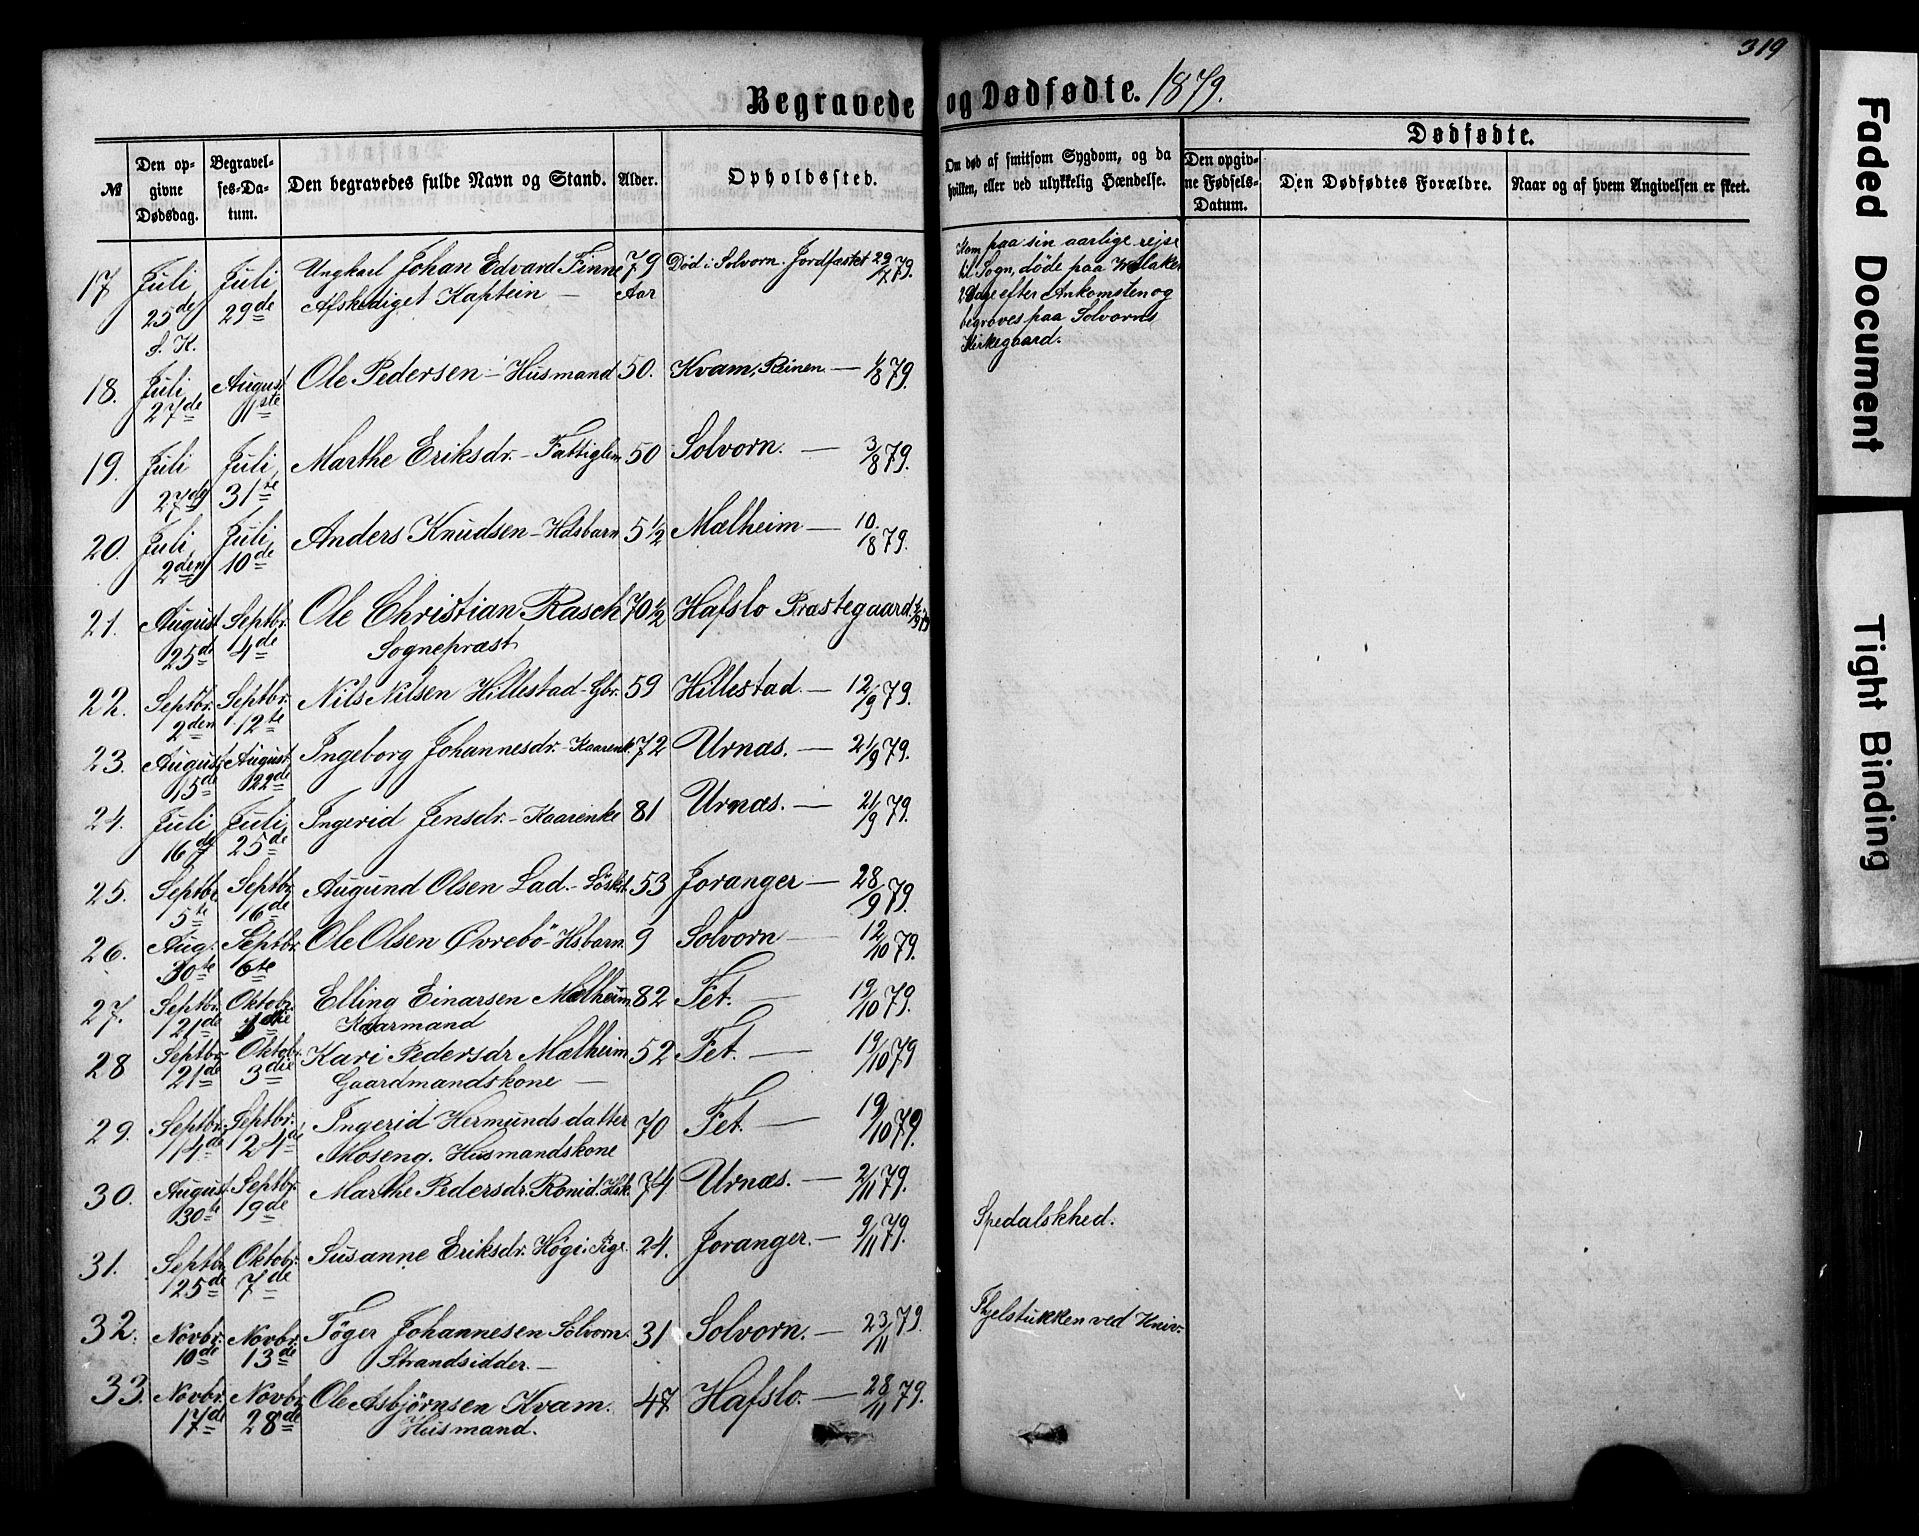 319
Begravede og Dødfødte. 1879.
№
Den opgivne Dødsdag.
Begravelses-Datum.
Den begravedes fulde Navn og Stand.
Alder.
Opholdssted.
Om død af smitsom Sygdom, og da hvilken, eller ved ulykkelig Hændelse.
Dødfødte.
Den opgivne Fødsels-Datum.
Den Dødfødtes Forældre.
Naar og af hvem Angivelsen er skeet.
17 Juli 25de Juli 29de Ungkarl Johan Edvard Finne 79 Aar Død i Solvorn. Jordfæstet 29/7 79.
s. K. Afskediget Kaptein —
Kom paa sin aarlige rejse
til Sogn, døde paa
Dage efter Ankomsten og
begroves paa Solvorns
Kirkegaard.
18. Juli 27de August 1ste Ole Pedersen - Husmand 50. Kvam, Reinen — 1/8 79.
19. Juli 27de Juli 31te Marthe Eriksdr. - Fattiglem 50 Solvorn. — 3/8 79.
20. Juli 2den Juli 10de Anders Knudsen - Hdsbarn 5 1/2 Mælheim — 10/8 79.
21. August 25de Septbr. 4de Ole Christian Rasch 70 1/2 Hafslo Præstegaard
Sognepræst
22. Septbr. 2den Septbr. 12te Nils Nilsen Hillestad - Gbr. 59 Hillestad. — 12/9 79.
23. August 15de August 22de Ingeborg Johannesdr. - Kaarenk. 72 Urnæs. — 21/9 79.
24. Juli 16de Juli 25de Ingerid Jensdr. - Kaarenke 81 Urnæs. — 21/9 79.
25. Septbr. 5te Septbr. 16de Augund Olsen Lad. - 53 Joranger — 28/9 79.
26. Aug. 30te Septbr. 6te Ole Olsen Øvrebö - Hsbarn. 9 Solvorn — 12/10 79.
27. Septbr. 21de Oktobr. Elling Einarsen Mælheim 82 Fet. — 19/10 79.
Kaarmand
28 Septbr. 21de Oktobr. 3die Kari Pedersdr Mælheim 52 Fet. — 19/10 79
Gaardmandskone —
29. Septbr. 14de Septbr. 24de Ingerid Hermundsdatter 70 Fet. — 19/10 79.
Moseng. Husmandskone
30. August 30te Septbr. 9de Marthe Pedersdr. Ronid. Hsk. 74 Urnæs. — 2/11 79.
31. Septbr. 25de Oktobr. 7de Susanne Eriksdr. Högi. Pige. 24. Joranger. — 9/11 79. Spedalskhed.
32. Novbr. 10de Novbr. 13de Töger Johannesen Solvorn. 31 Solvorn. — 23/11 79. Ihjelstukken ved Kniv.
Strandsidder. —
33. Novbr. 17de Novbr. 28de Ole Asbjørnsen Kvam. 47 Hafslo. — 28/11 79.
Husmand.
Faded Document
Tight Binding